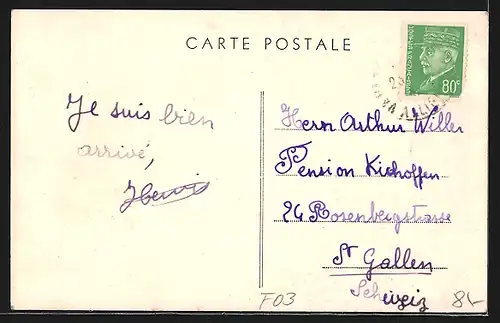 CARTE POSTALE
80c
Je suis bien
arrivé,
Henri
Herrn Arthur Willer
Pension Kichoffen
24 Rosenbergstrasse
St Gallen
Schweiz
F03